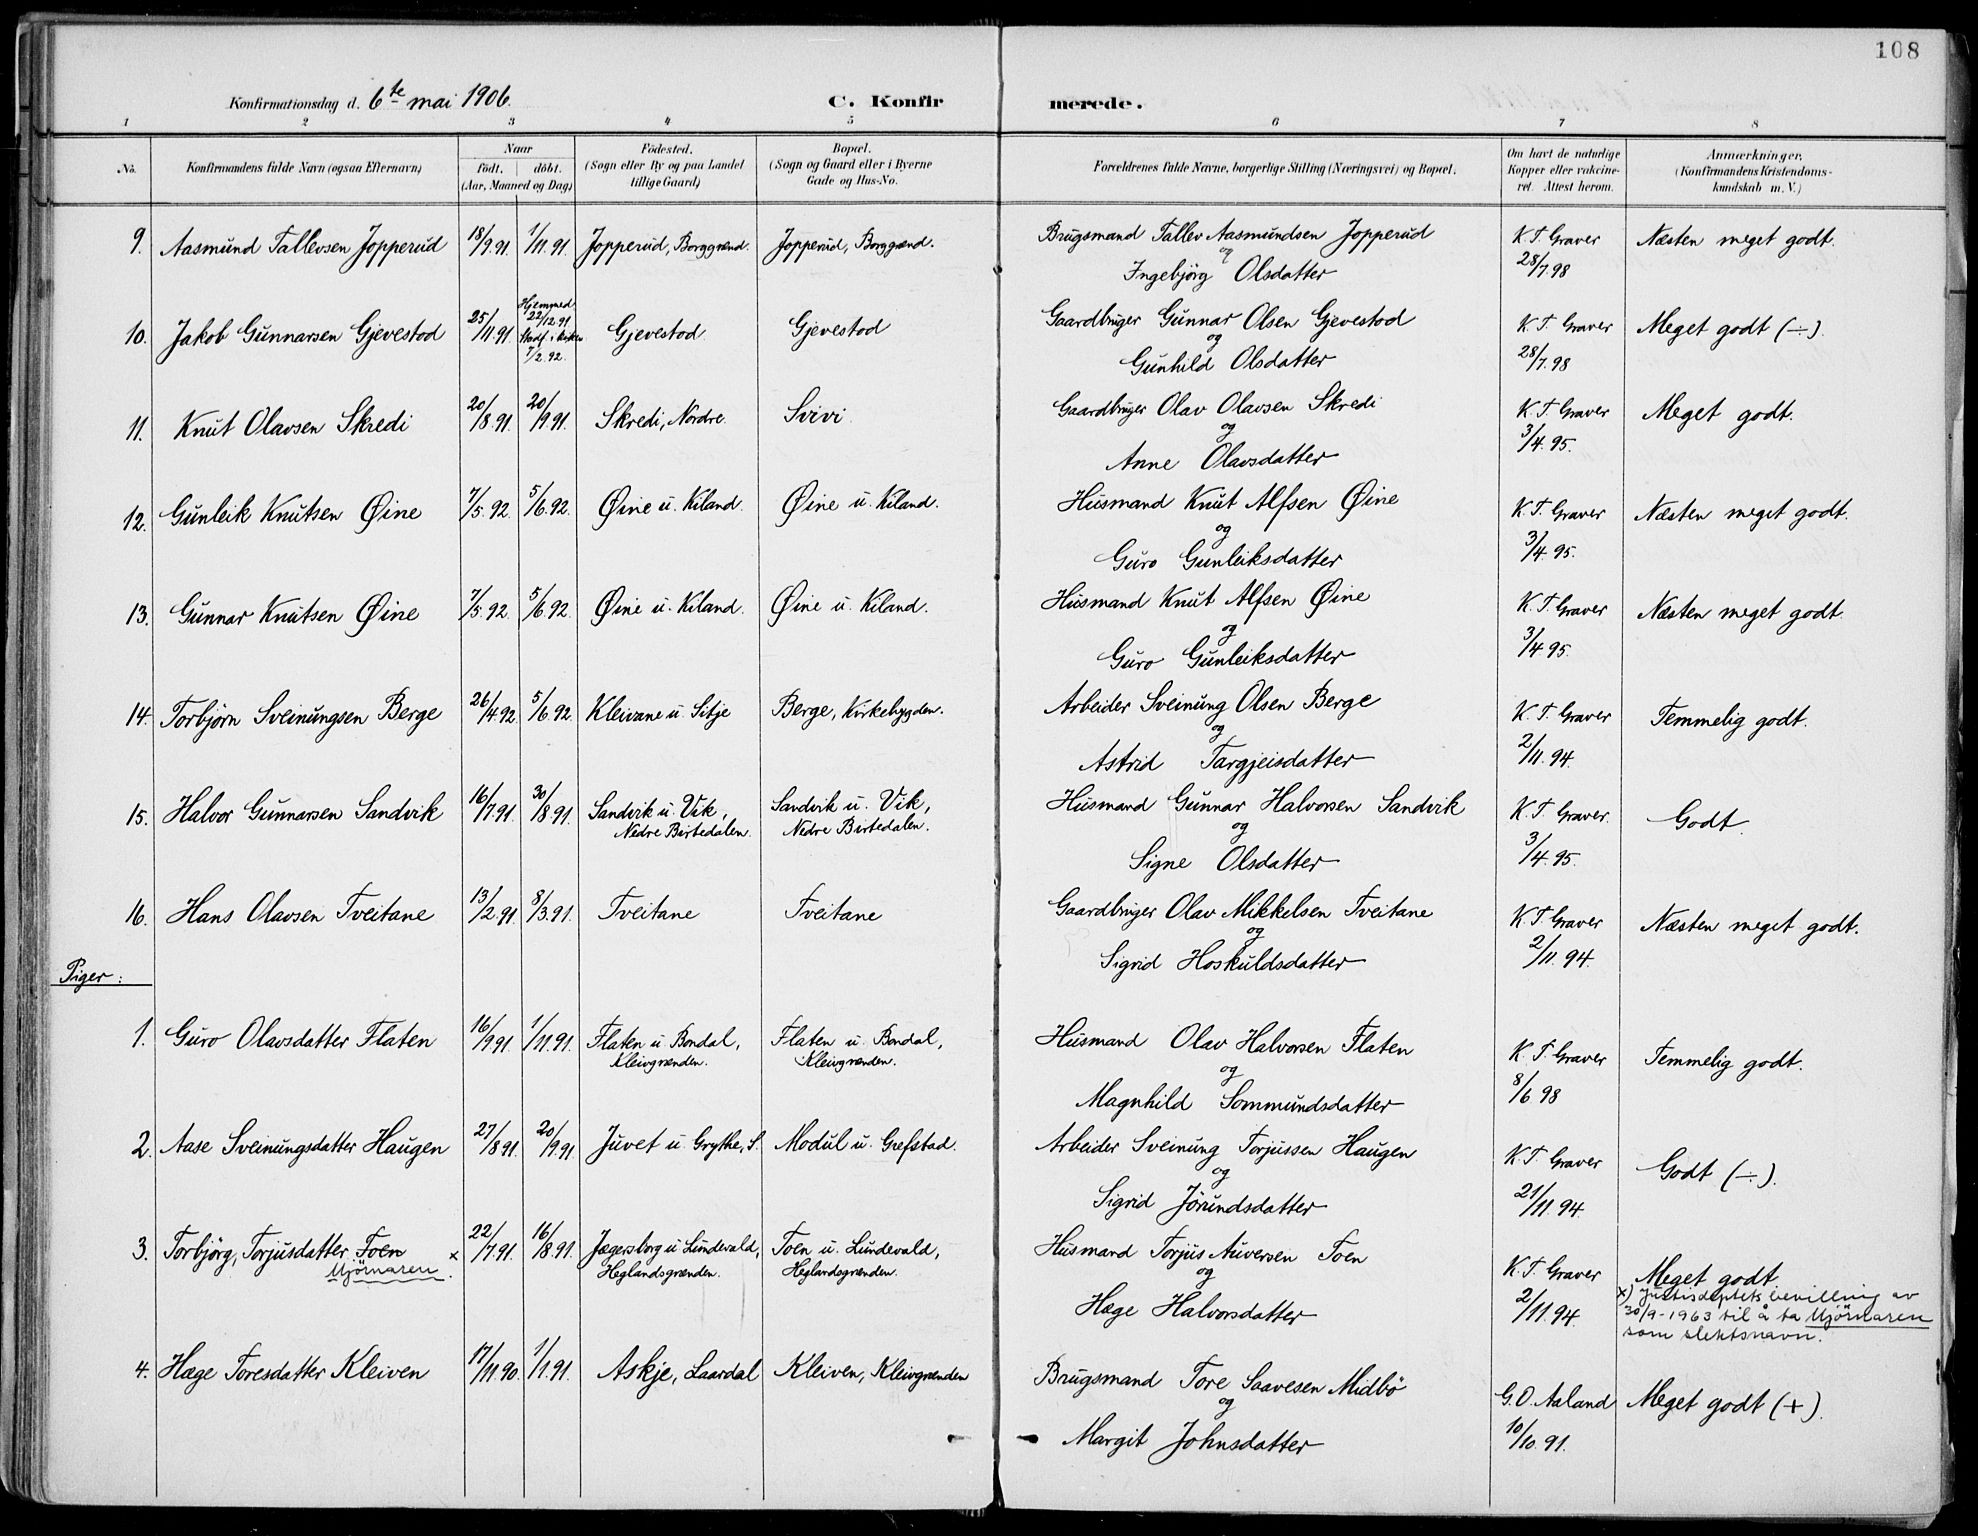 108
Konfirmationsdag d. 6te mai 1906.
C. Konfirmerede.
1 2 3 4 5 6 7 8
No.
Konfirmandens fulde Navn (ogsaa Efternavn)
Naar
født. døbt.
(Aar, Maaned og Dag)
Fødested.
(Sogn eller By og paa Landet
tillige Gaard)
Bopæl.
(Sogn og Gaard eller i Byerne
Gade og Hus-No.
Forældrenes fulde Navne, borgerlige Stilling (Næringsvei) og Bopæl.
Om havt de naturlige
Kopper eller vakcine-
ret. Attest herom.
Anmærkninger,
(Konfirmandens Kristendoms-
kundskab m. V.)
9. Aasmund Tallevsen Jopperud 18/9.91 1/11.91 Jopperud, Borggrænd. Jopperud, Borggrænd. Brugsmand Tallev Aasmundsen Jopperud K. T. Graver Næsten meget godt.
og
Ingebjörg Olsdatter 28/7.98
10. Jakob Gunnarsen Gjevestod 25/11.91 Hjemmed. 22/12.91 Stadf. i kirken 7/2.92. Gjevestod Gjevestod Gaardbruger Gunnar Olsen Gjevestod K. T. Graver Meget godt (÷).
og
Gunhild Olsdatter 28/7.98
11. Knut Olavsen Skredi 20/8.91. 20/9.91. Skredi, Nordre. Svivi Gaardbruger Olav Olavsen Skredi K. T. Graver Meget godt.
og
Anne Olavsdatter 3/4.95.
12. Gunleik Knutsen Øine 7/5.92. 5/6.92. Øine u. Kiland. Øine u. Kiland. Husmand Knut Alfsen Øine K. T. Graver Næsten meget godt.
og
Guro Gunleiksdatter 3/4.95.
13. Gunnar Knutsen Øine 7/5.92. 5/6.92. Øine u. Kiland. Øine u. Kiland. Husmand Knut Alfsen Øine K. T. Graver Næsten meget godt.
og
Guro Gunleiksdatter 3/4 95.
14. Torbjörn Sveinungsen Berge 26/4.92. 5/6.92. Kleivane u. Sitje Berge, Kirkebygden. Arbeider Sveinung Olsen Berge K. T. Graver Temmelig godt.
og
Astrid Targjeisdatter 2/11.94.
15. Halvor Gunnarsen Sandvik 16/7.91. 30/8.91. Sandvik u. Vik, Sandvik u. Vik, Husmand Gunnar Halvorsen Sandvik K. T. Graver. Godt.
Nedre Birtedalen. Nedre Birtedalen. og
Signe Olsdatter 3/4.95.
16. Hans Olavsen Tveitane 13/2.91. 8/3.91. Tveitane Tveitane Gaardbruger Olav Mikkelsen Tveitane K. T. Graver Næsten meget godt.
og
Sigrid Hoskuldsdatter 2/11.94.
Piger:
1. Guro Olavsdatter Flaten 16/9.91. 1/11.91. Flaten u. Bondal, Flaten u. Bondal, Husmand Olav Halvorsen Flaten K. T. Graver Temmelig godt.
Kleivgrænden. Kleivgrænden. og
Magnhild Sommundsdatter 8/6 98
2. Aase Sveinungsdatter Haugen 27/8.91. 20/9.91. Juvet u. Grythe, S. Modul u. Grefstad. Arbeider Sveinung Torjussen Haugen K. T. Graver Godt (÷).
og
Sigrid Jörundsdatter 21/11.94.
3. Torbjörg, Torjusdatter Foen x 22/7.91. 16/8.91. Jægersborg u. Lundevald, Foen u. Lundevald, Husmand Torjus Auversen Foen K. T. Graver Meget godt.
Mjörnaren. Heglandsgrænden. Heglandsgrænden. og
Hæge Halvorsdatter 2/11.94.
x) Justisdeptets bevilling av
30/9-1963 til å ta Mjörnaren
som slektsnavn.
4. Hæge Toresdatter Kleiven 17/11.90. 1/1.91. Askje, Laardal Kleiven, Kleivgrænden Brugsmand Tore Saavesen Midbö G. O. Aaland Meget godt (+).
og
Margit Johnsdatter 10/10.91.